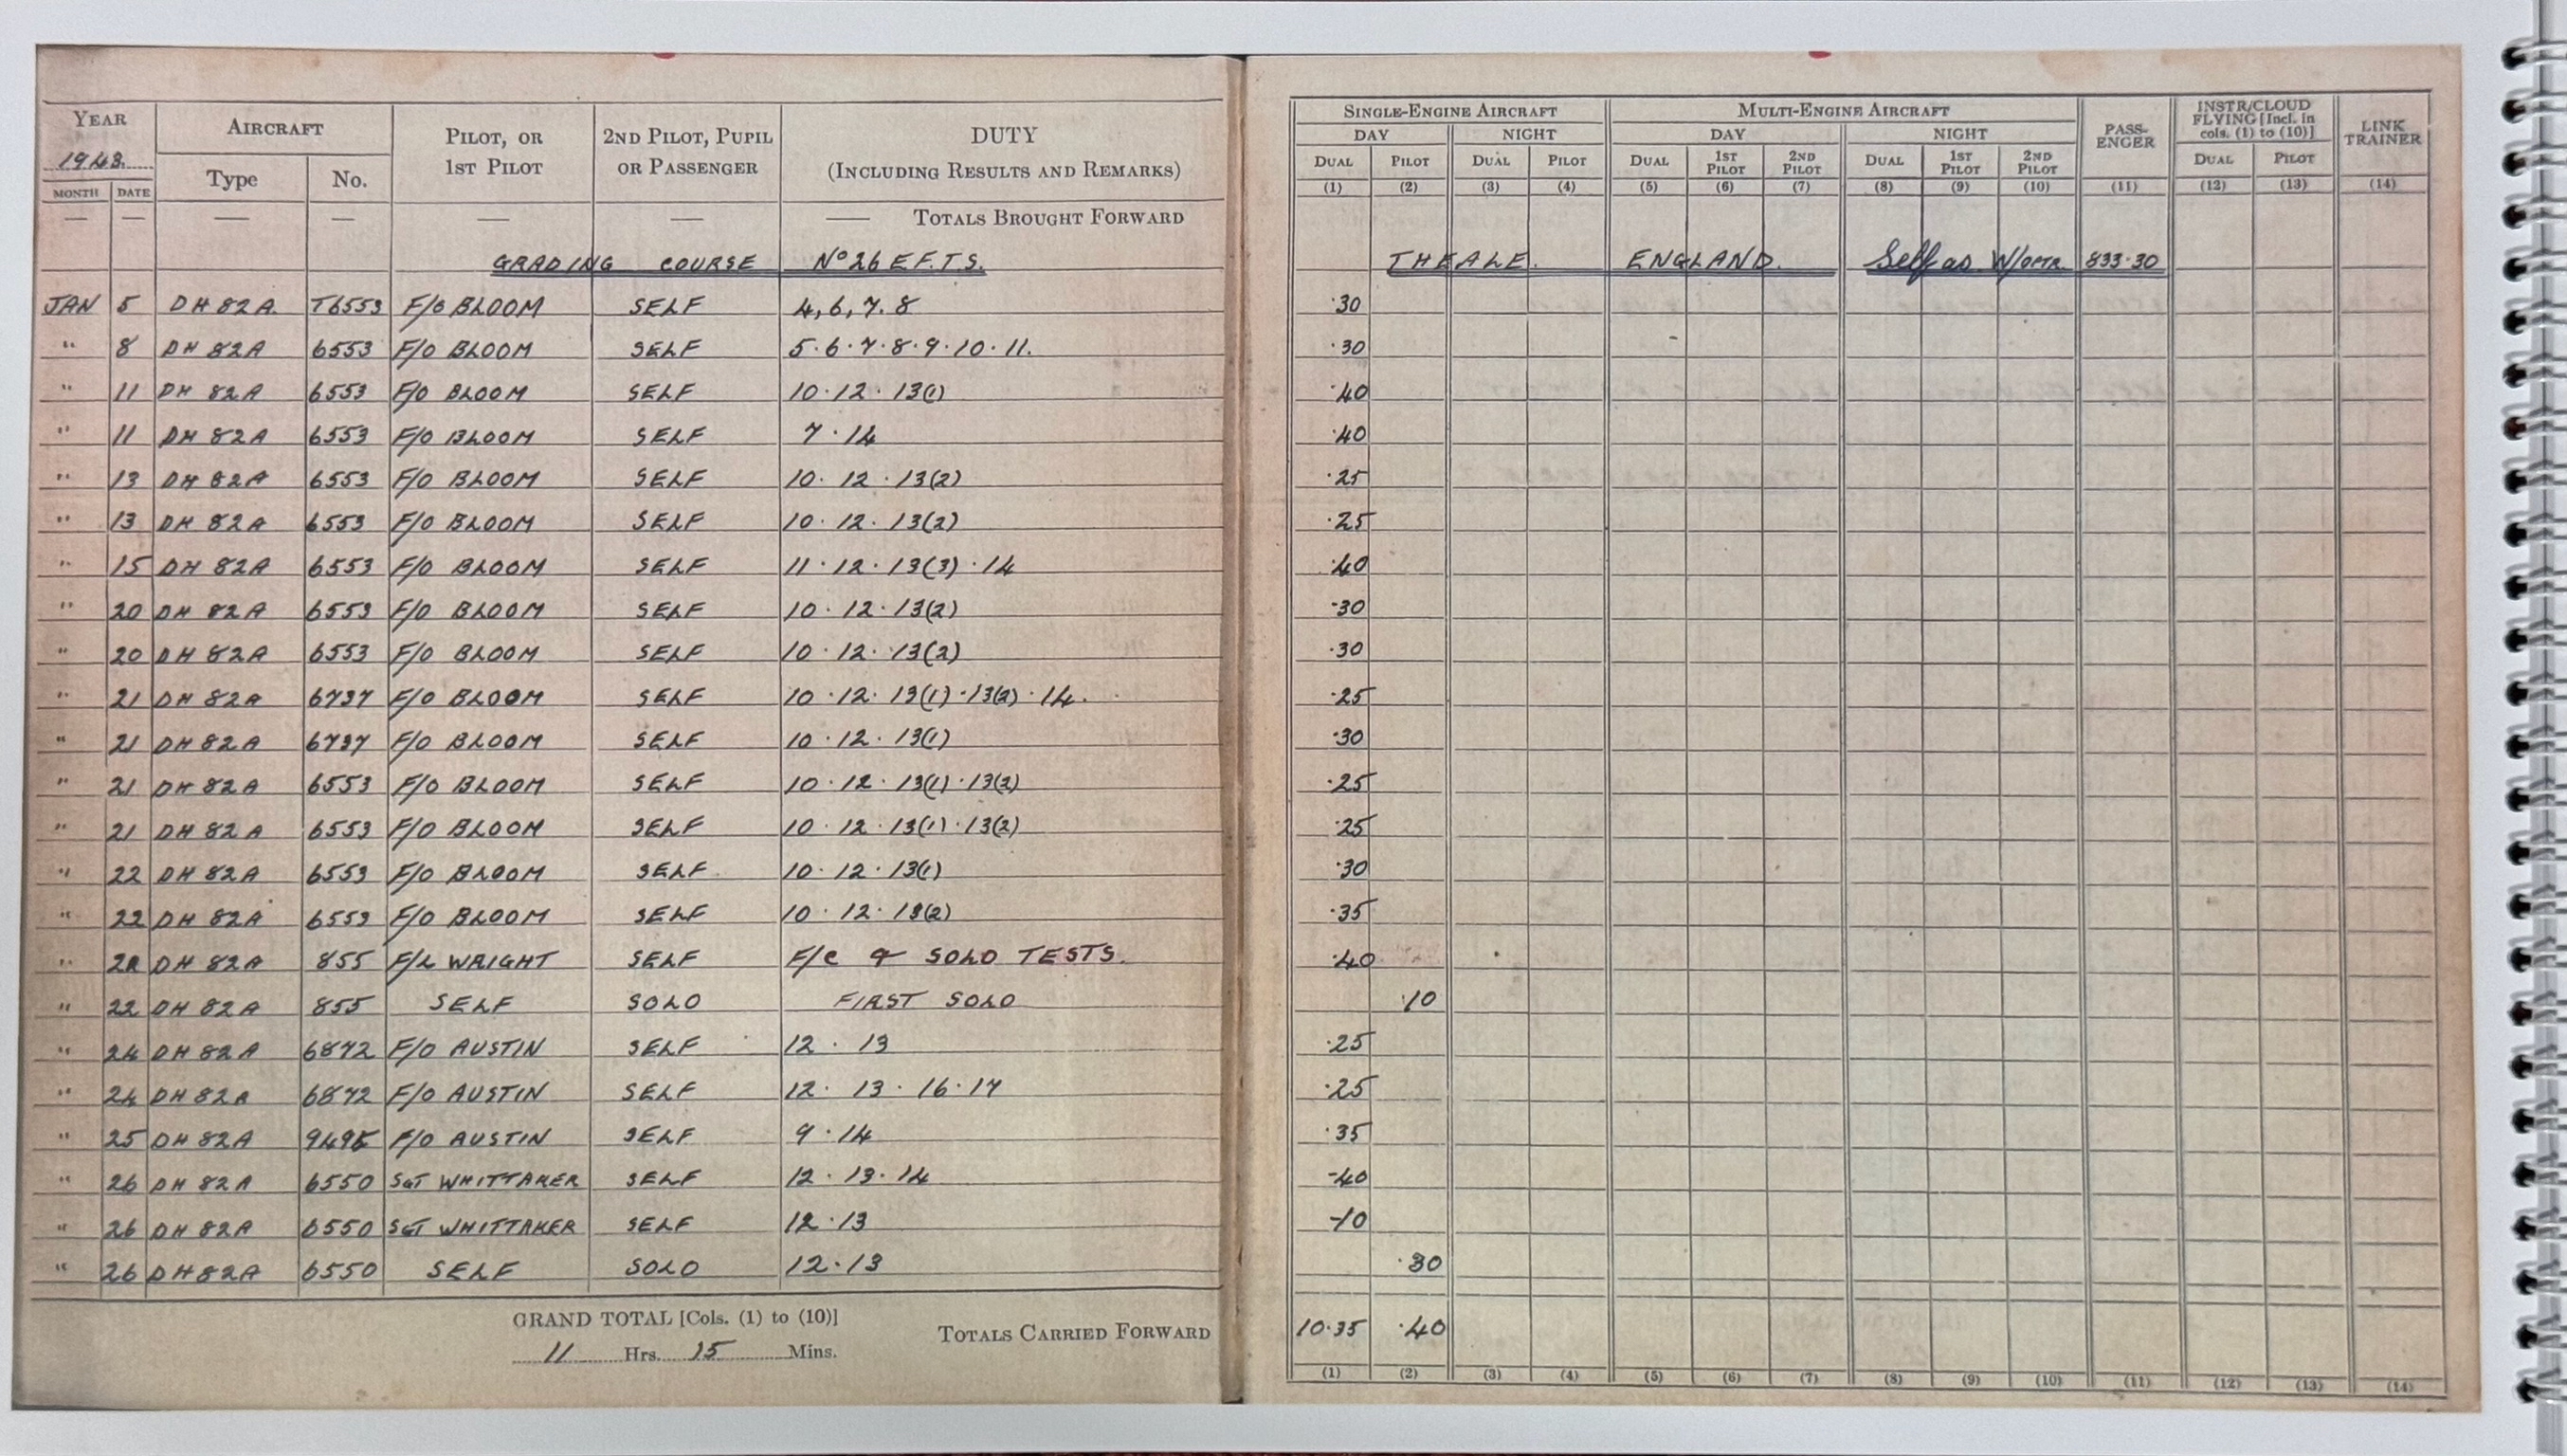 YEAR AIRCRAFT PILOT, OR 1ST PILOT 2ND PILOT, PUPIL OR PASSENGER DUTY (INCLUDING RESULTS AND REMARKS) SINGLE-ENGINE AIRCRAFT MULTI-ENGINE AIRCRAFT PASS-ENGER INSTR/CLOUD FLYING [Incl. in cols. (1) to (10)] LINK TRAINER
1943. Type No. DAY NIGHT DAY NIGHT
MONTH DATE DUAL PILOT DUAL PILOT DUAL 1ST PILOT 2ND PILOT DUAL 1ST PILOT 2ND PILOT DUAL PILOT
(1) (2) (3) (4) (5) (6) (7) (8) (9) (10) (11) (12) (13) (14)
— — — — — — — TOTALS BROUGHT FORWARD
GRADING COURSE No 26 E.F.T.S. THEALE. ENGLAND. Self as W/OPTR. 833·30
JAN 5 DH 82A. T6553 F/O BLOOM SELF 4, 6, 7. 8 ·30
" 8 DH 82A 6553 F/O BLOOM SELF 5·6·7·8·9·10·11. ·30
" 11 DH 82A 6553 F/O BLOOM SELF 10·12·13(1) ·40
" 11 DH 82A 6553 F/O BLOOM SELF 7·14 ·40
" 13 DH 82A 6553 F/O BLOOM SELF 10·12·13(2) ·25
" 13 DH 82A 6553 F/O BLOOM SELF 10·12·13(2) ·25
" 15 DH 82A 6553 F/O BLOOM SELF 11·12·13(3)·14 ·40
" 20 DH 82A 6553 F/O BLOOM SELF 10·12·13(2) ·30
" 20 DH 82A 6553 F/O BLOOM SELF 10·12·13(2) ·30
" 21 DH 82A 6737 F/O BLOOM SELF 10·12·13(1)·13(2)·14. ·25
" 21 DH 82A 6737 F/O BLOOM SELF 10·12·13(1) ·30
" 21 DH 82A 6553 F/O BLOOM SELF 10·12·13(1)·13(2) ·25
" 21 DH 82A 6553 F/O BLOOM SELF 10·12·13(1)·13(2) ·25
" 22 DH 82A 6553 F/O BLOOM SELF 10·12·13(1) ·30
" 22 DH 82A 6553 F/O BLOOM SELF 10·12·13(2) ·35
" 22 DH 82A 855 F/L WRIGHT SELF F/C & SOLO TESTS. ·40
" 22 DH 82A 855 SELF SOLO FIRST SOLO ·10
" 24 DH 82A 6872 F/O AUSTIN SELF 12·13 ·25
" 24 DH 82A 6872 F/O AUSTIN SELF 12·13·16·17 ·25
" 25 DH 82A F/O AUSTIN SELF 9·14 ·35
" 26 DH 82A 6550 SGT WHITTAKER SELF 12·13·14 -40
" 26 DH 82A 6550 SGT WHITTAKER SELF 12·13 -10
" 26 DH 82A 6550 SELF SOLO 12·13 ·30
GRAND TOTAL [Cols. (1) to (10)]
11 Hrs. 15 Mins. TOTALS CARRIED FORWARD 10·35 ·40
(1) (2) (3) (4) (5) (6) (7) (8) (9) (10) (11) (12) (13) (14)